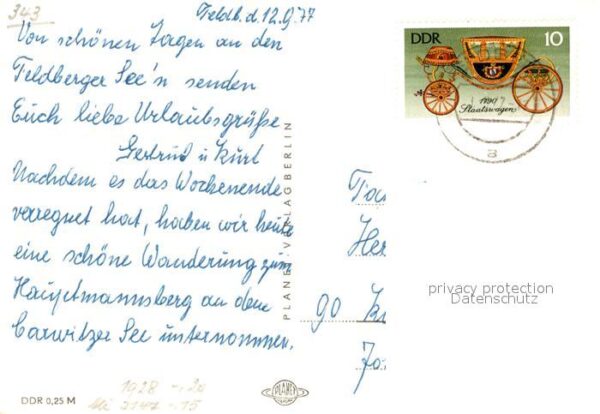 343
Feldb. d. 12.9.77
Von schönen Tagen an den
Feldberger See'n senden
Euch liebe Urlaubsgrüße
Gertrud u. Kurt
Nachdem es das Wochenende
verregnet hat, haben wir heute
eine schöne Wanderung zum
Hauptmannsberg an dem
Carwitzer See unternommen.
DDR 0,25 M
1928 - 20
Mi 2147 - 15
PLANET
PLANET-VERLAG BERLIN
DDR 10
1790
Staatswagen
a
90
privacy protection
Datenschutz